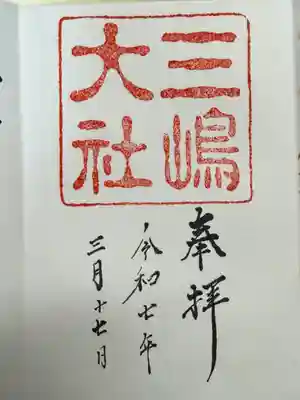 三嶋
大社
奉拝
令和七年
三月十七日